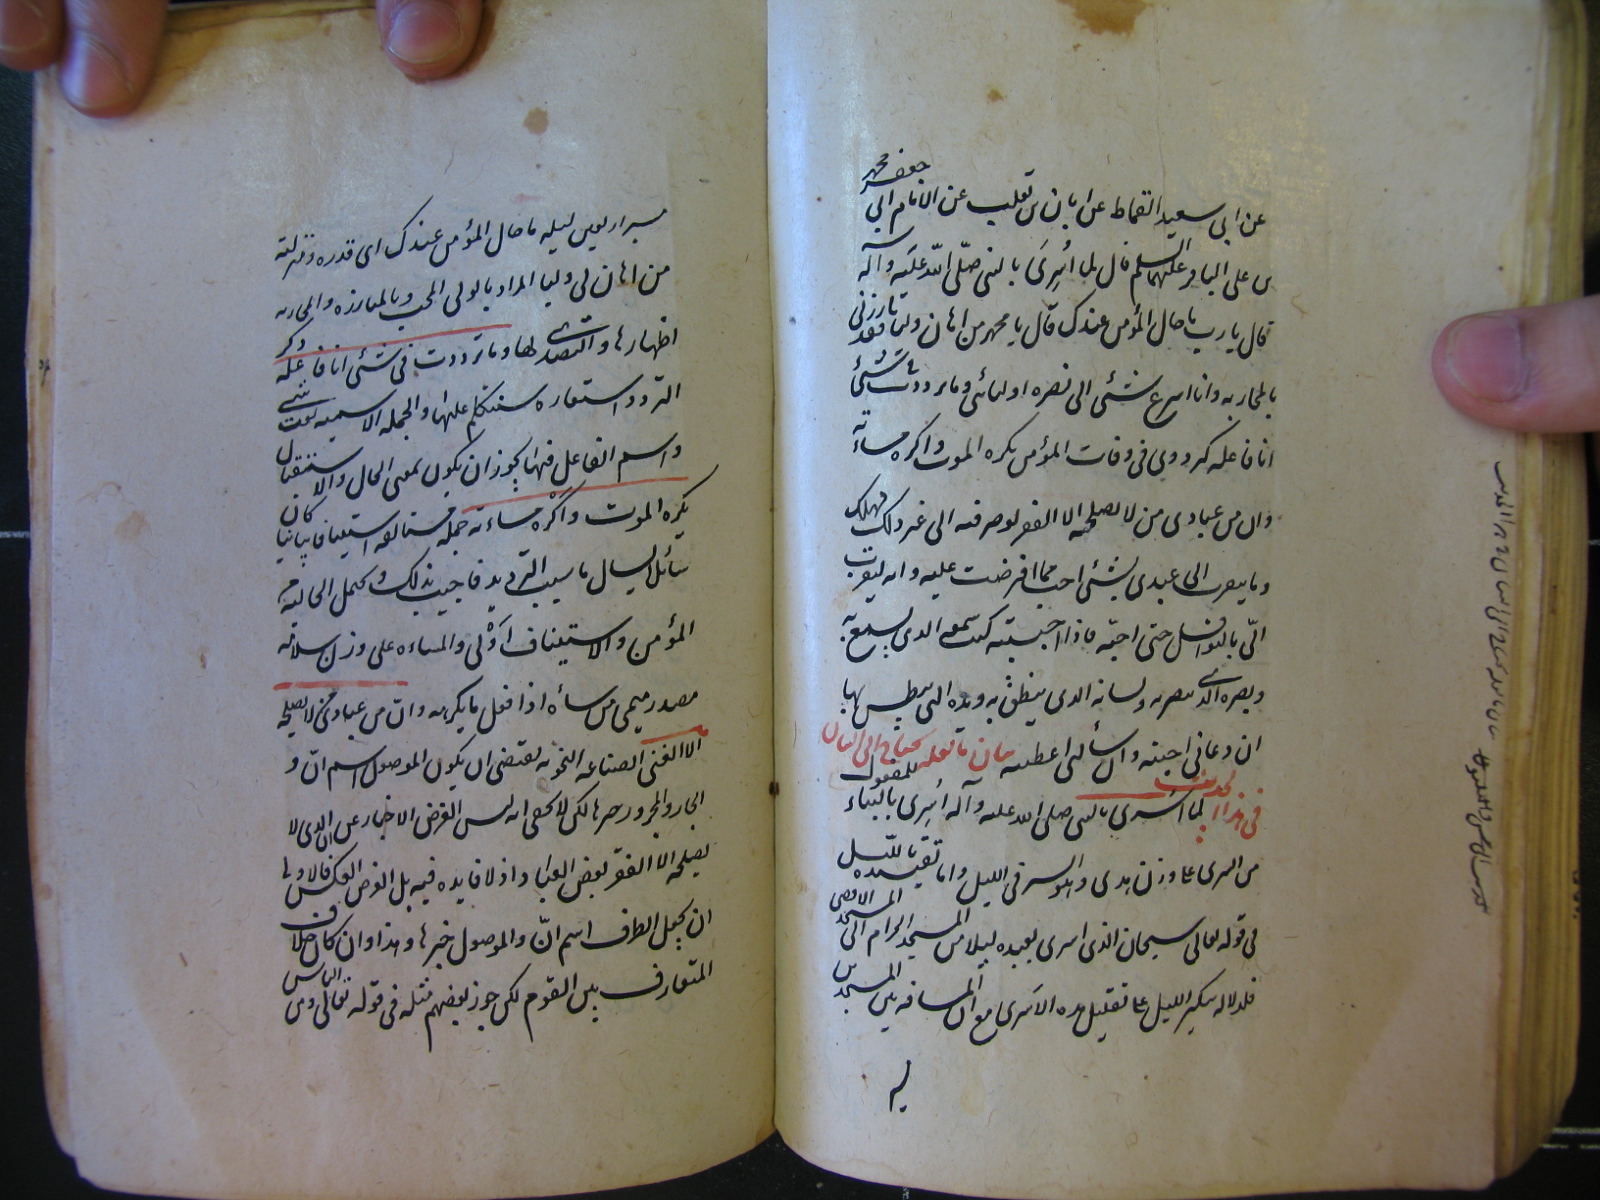 عن ابي سعيد القماط عن ابان بن تغلب عن الامام ابي جعفر محمد
بن علي الباقر عليهما السلم قال لما أُسرِيَ بالنبي صلّى الله عليه وآله
قال يا رب ما حال المؤمن عندك قال يا محمد من اهان وليا فقد بارزني
بالمحاربه وانا اسرع شئي الى نصره اوليائي وما ترددت في شئ
انا فاعله كترددي في وفات المؤمن يكره الموت واكره مساءته
وان من عبادي من لا يصلحه الا الفقر لو صرفته الى غير ذلك لهلك
وما يتقرب الى عبدي بشئي احب مما افترضت عليه وانه ليتقرب
اليّ بالنوافل حتى احبّه فاذا احببته كنت سمعه الذي يسمع به
وبصره الذي يبصر به ولسانه الذي ينطق به ويده التي يبطش بها
ان دعاني اجبته وان سألني اعطيته بيان ما لعله يحتاج الى البيان
في هذا الحديث لما اسرى بالنبي صلى الله عليه وآله أُسرِى بالبناء للمفعول
من السرى على وزن هدى وهو السير في الليل واما تقييده بالليل
في قوله تعالى سبحان الذي اسرى بعبده ليلا من المسجد الحرام الى المسجد الاقصى
فللدلاله بتنكير الليل على تقليل مده الاسرى مع ان المسافه بين المسجدين
مسير اربعين ليله ما حال المؤمن عندك اي قدره ومنزلته
من اهان لي وليا المراد بالولي المحب وبالمبارزه والمحاربه
اظهارها والتصدي لها وما ترددت في شئي انا فاعله ذكر
التردد استعاره سنتكلم عليها والجمله الاسميه نعت شي
واسم الفاعل فيها يجوز ان يكون بمعنى الحال والاستقبال
يكره الموت واكْرَه مساءته جمله مستانفه استينافا بيانيا كان
سائلا يسال ما سبب الترديد فاجيب بذلك ويحتمل الحاليه من
المؤمن والاستيناف اَوْلى والمساءه على وزن سلامه
مصدر ميمي من ساءه اذا فعل ما يكرهه وانّ من عبادي من لا يصلحه
الا الغنى الصناعه النحويه تقتضي ان يكون الموصول اسم انّ و
الجار والمجرور خبرها لكن لا يخفى انه ليس الغرض الاخبار عن ان الذي لا
يصلحه الا الفقر بعض العباد اذ لا فايده فيه بل الغرض العكس فالاولى
ان يجعل الظرف اسم انّ والموصول خبرها وهذا وان كان خلاف
المتعارف بين القوم لكن جوز بعضهم مثله في قوله تعالى ومن الناس